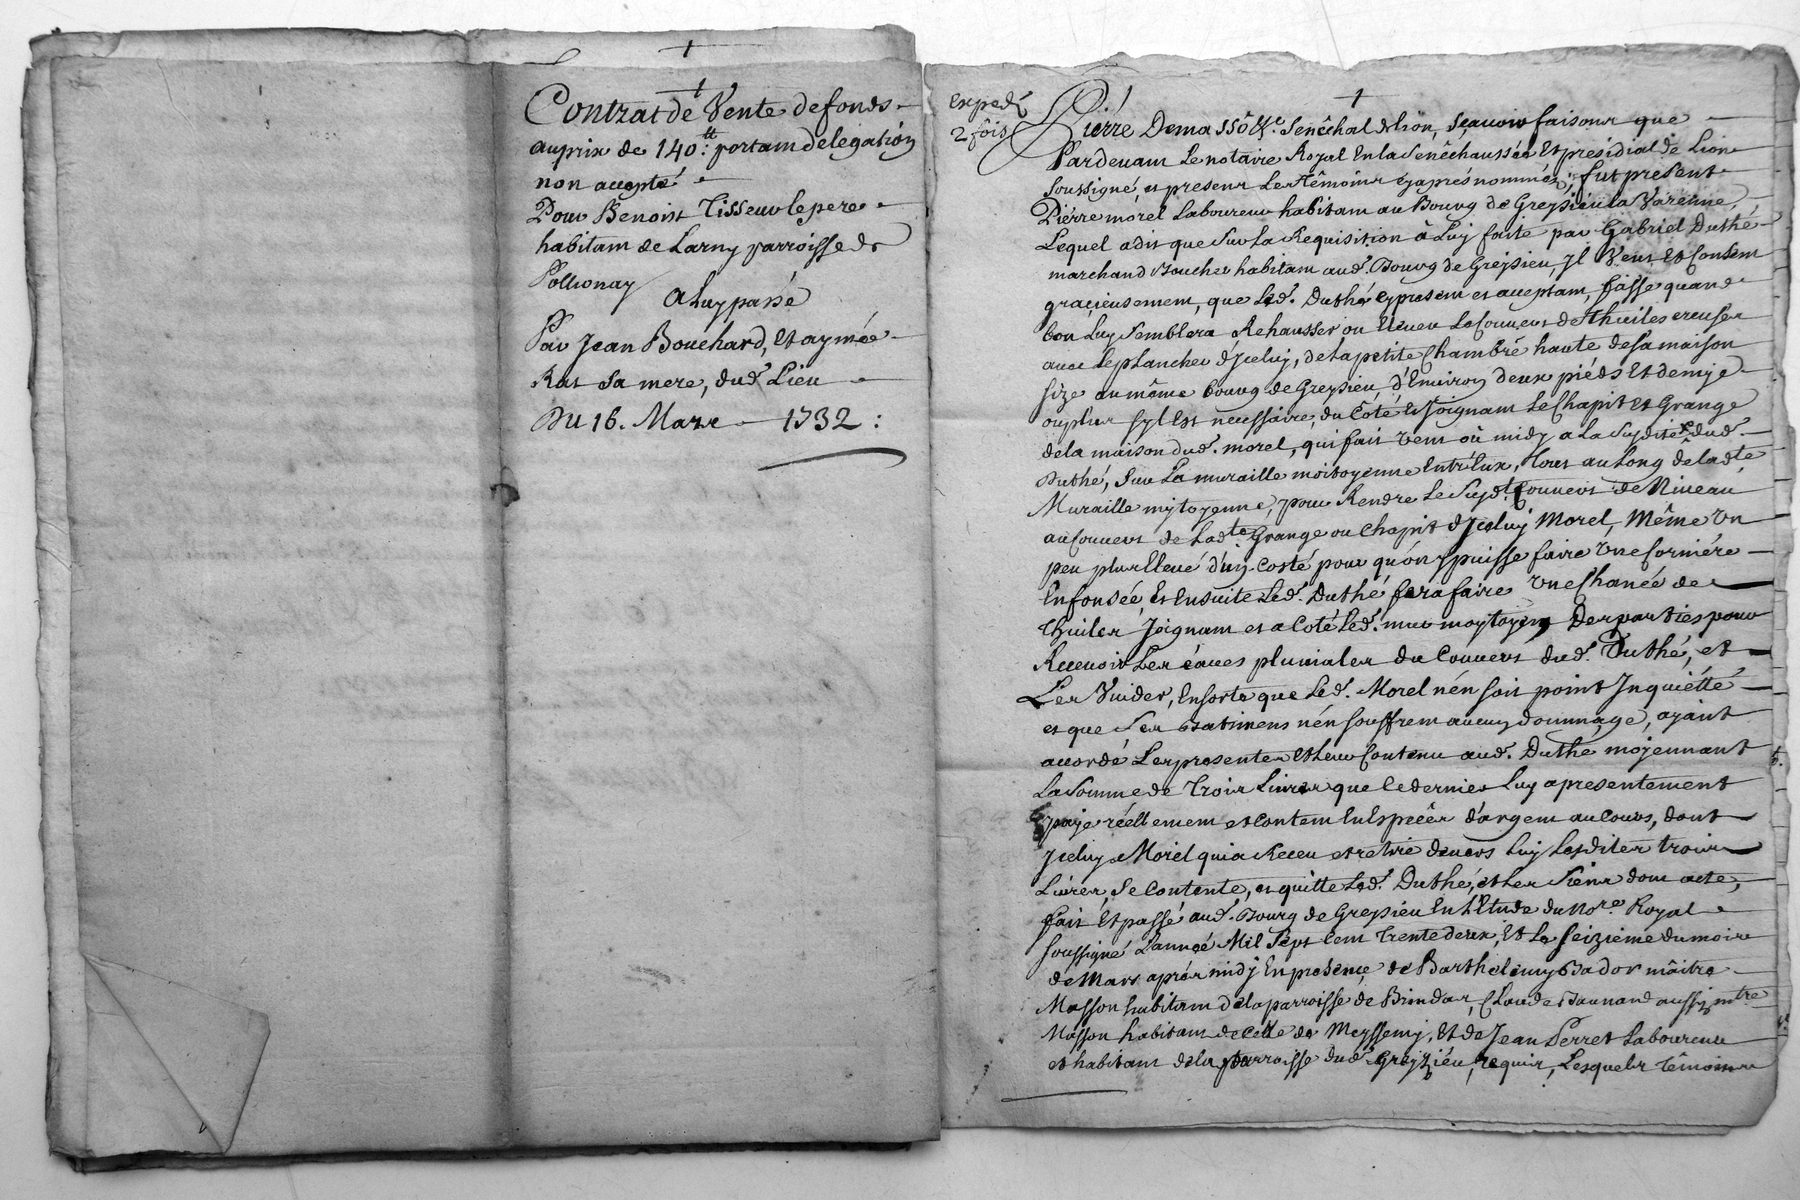 Contrat de Vente de fonds
au prix de 140.ᵗᵗ portam delegation
non accepté
Pour Benoist Tisseur le pere
habitam de Larny parroisse de
Pollionay
a luy passé
Par Jean Bouchard, Et aymée
Rat sa mere, dud. Lieu
Du 16. Mars 1732 :
expedé
2 fois
Pierre Demassô &c. Senêchal de lion, sçauoir faisons que
Pardeuam Le notaire Royal En la Senêchaussée Et presidial de Lion
soussigné, et presens Les têmoins cyaprés nommés, fut present
Piérre môrel Laboureur habitam au Bourg de Greysieu la Varenne,
Lequel a dit que sur La Requisition â Luy faite par Gabriel Duthé
marchand Boucher habitam aud. Bourg de Greysieu, Jl Veut Et Consem
gracieusemem, que Led. Duthé cy presem et acceptam, fasse quand
bon Luy Semblera Rehausser ou Eleuer Le Couuers de thuiles creuses
auec Le plancher d'Jceluy, de La petite Chambre haute de sa maison
size au même bourg de Greysieu, d'Enuiron deux piéds Et demye
ou plus s'yl Est necessaire, du Côté Et Joignam Le Chapit Et Grange
de la maison dud. morel, qui fait vent où midy a La Susdite dud.
Duthé, sur La muraille moitoyenne Entr'Eux, tout au Long de lad.te
Muraille mytoyenne, pour Rendre Le Susd.t Couuers de Niueau
au Couuers de Lad.te Grange ou Chapit d'Jceluy Morel, Même Vn
peu plus Eleué d'un Costé pour qu'on y puisse faire Vne forniére
Enfonsée, Et Ensuite Led. Duthé fera faire Vne Chanée de
thuiles Joignam et a Coté Led. mur moytoyen Des parties pour
Receuoir Les eâues pluuiales du Couuers dud. Duthé, et
Les Vuider, En sorte que Led. Morel n'én soit point Jnquiétté
et que Ses Batimens n'én souffrem aucun dommage, ayant
accordé Les presentes Et Leur Contenu aud. Duthé moyennant
La Somme de Trois Liures que Ce dernier Luy a presentement
payé réellemem et contem En Espêces d'argem au Cours, dont
Jceluy Morel qui a Receu et retiré deuers Luy Lesdites trois
Liures, Se Contente, et quitte Led. Duthé, et Les Siens dont acte,
fait Et passé aud. Bourg de Greysieu En L'Etude du No.re Royal
soussigné L'année Mil Sept Cent Trente deux, Et Le seizieme du mois
de Mars aprés midy En presence de Barthelemy Bador mâitre
Masson habitam de la parroisse de Brindas, Claude Baunand aussy mtre
Masson habitam de Celle de Meyssemy, Et de Jean Perret Laboureur
et habitam de la parroisse dud. Greyzieu, requis, Lesquels têmoins